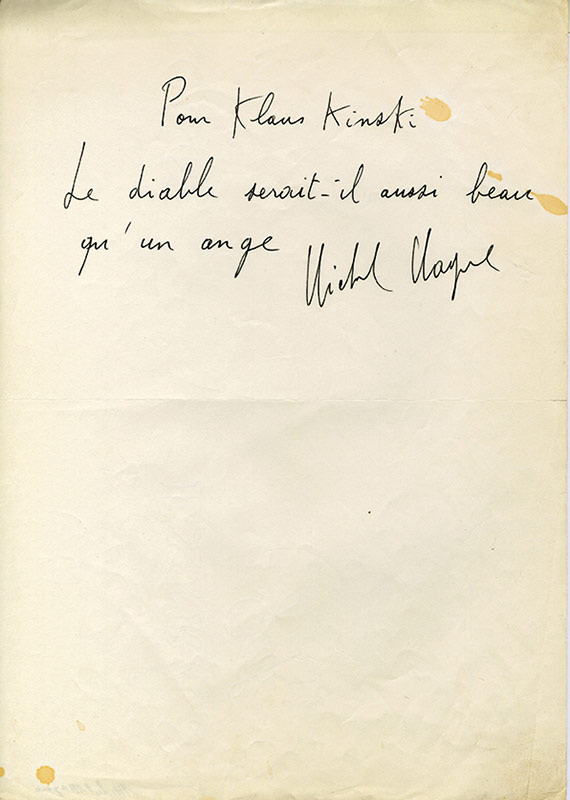 Pour Klaus Kinski
Le diable serait-il aussi beau
qu'un ange
Michel Magne